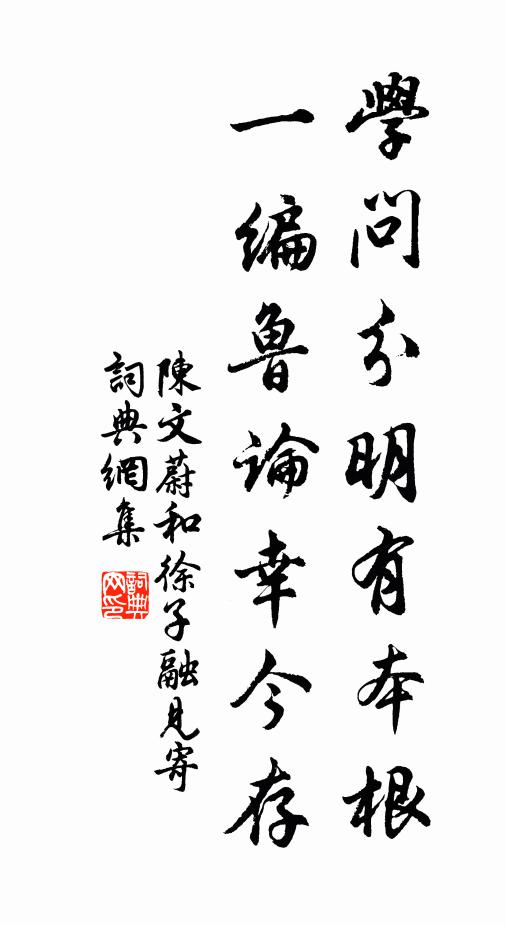 學問分明有本根
一編魯論幸今存
陳文蔚和徐子融見寄
詞典網集
詞典网印